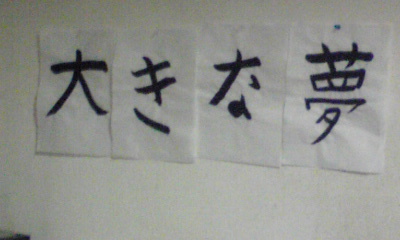 大きな夢